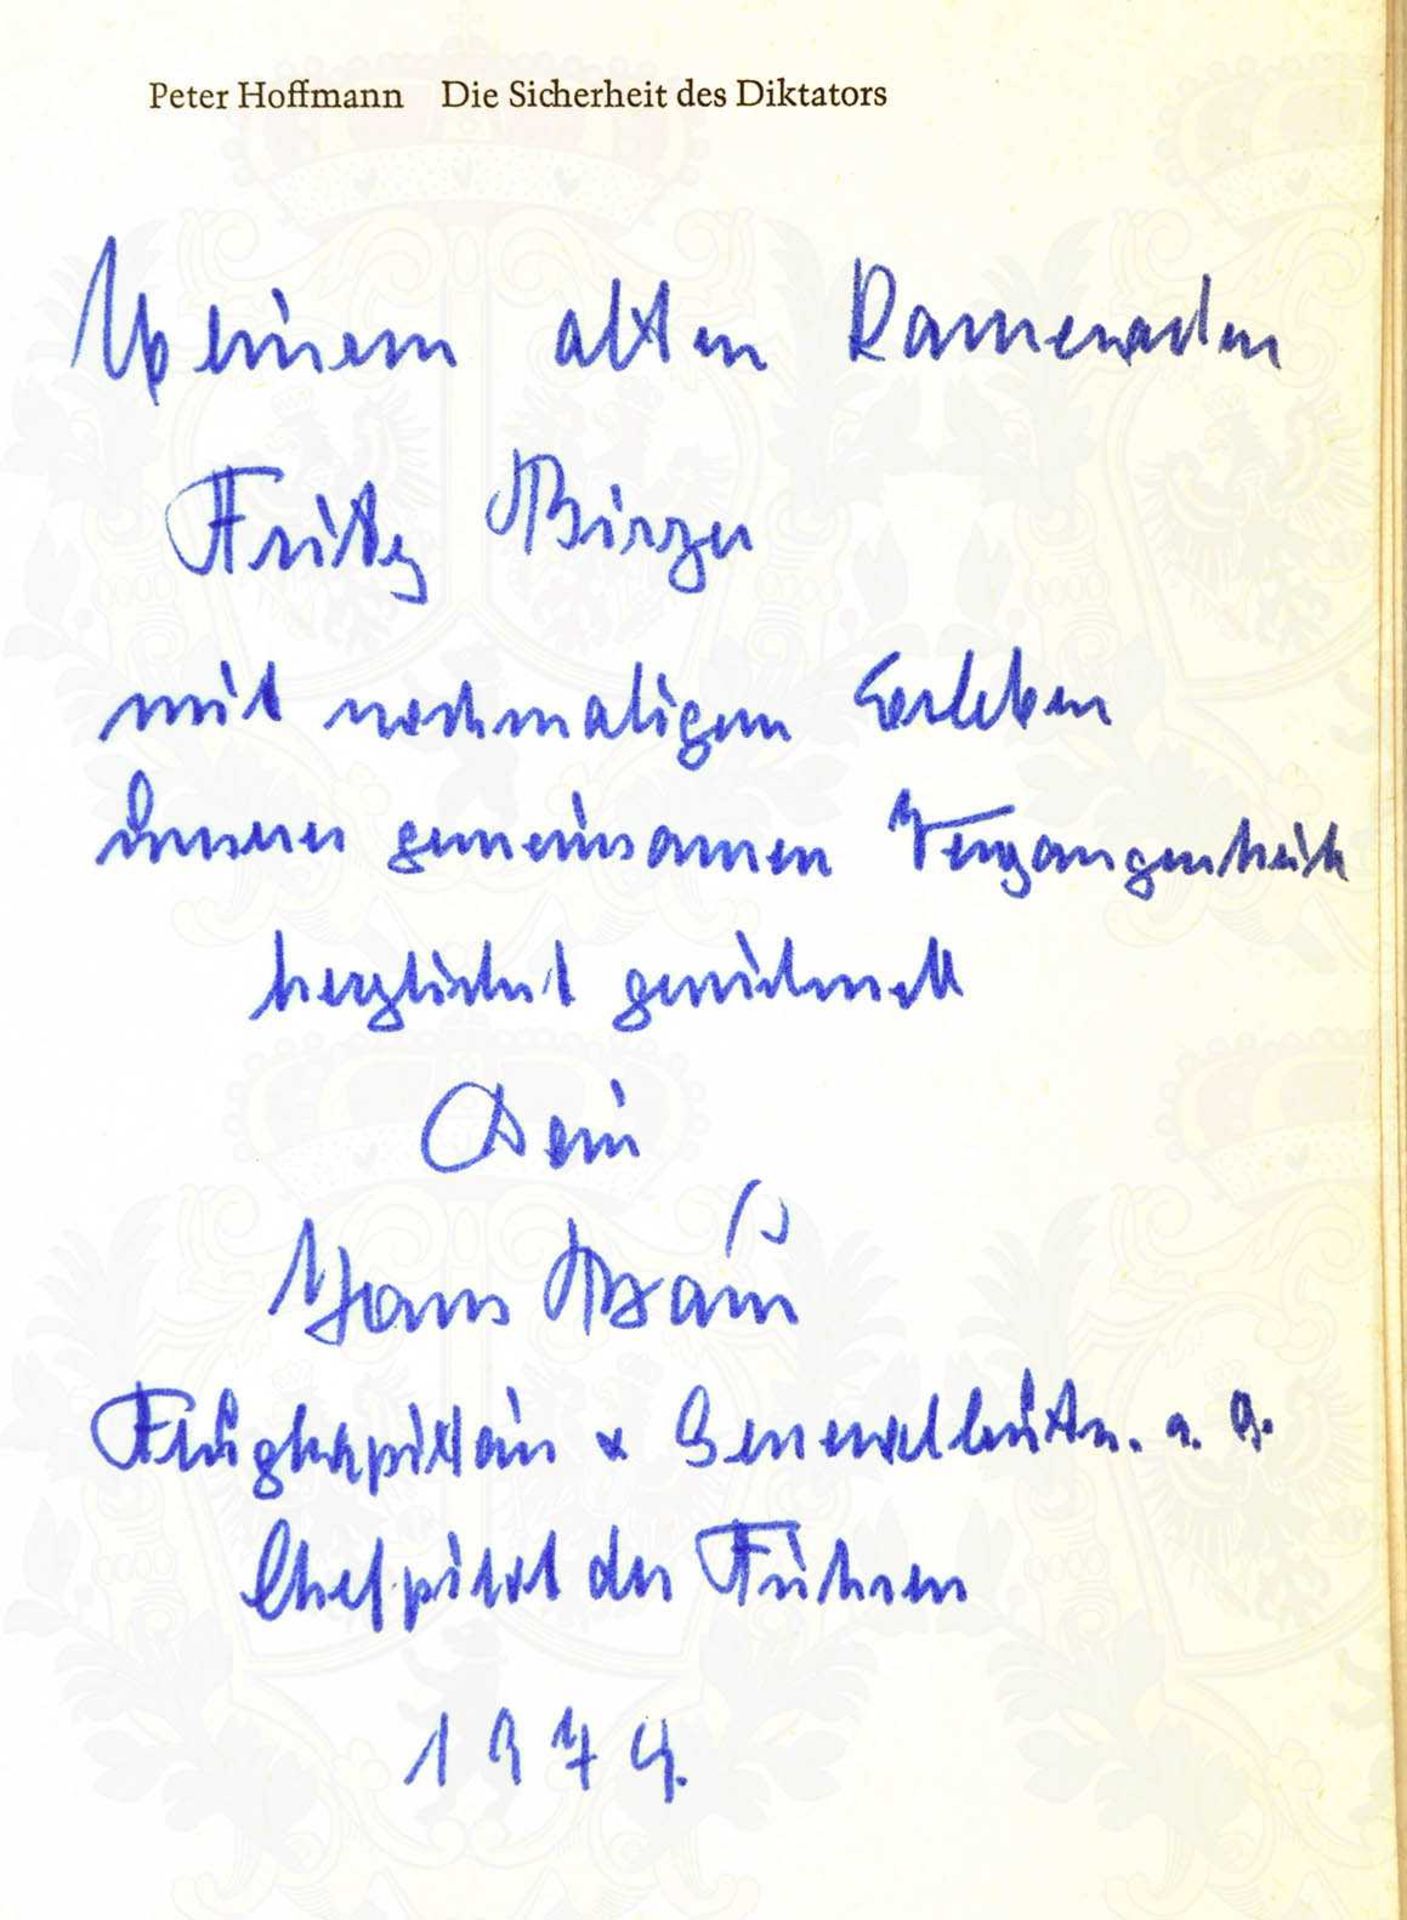 Peter Hoffmann Die Sicherheit des Diktators
Meinem alten Kameraden
Fritz Birzer
mit nochmaligem Erleben
unserer gemeinsamen Vergangenheit
herzlichst gewidmet
Dein
Hans Baur
Flugkapitän & Generalleutn. a. D.
Chefpilot des Führers
1979.